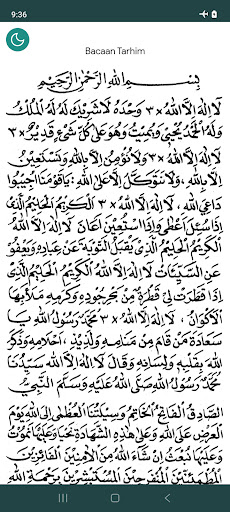 9:36
Bacaan Tarhim
بِسْمِ اللهِ الرَّحْمٰنِ الرَّحِيْمِ
لَا اِلٰهَ اِلَّا اللهُ ×٣ وَحْدَهُ لَا شَرِيْكَ لَهُ لَهُ الْمُلْكُ
وَلَهُ الْحَمْدُ يُحْيِيْ وَيُمِيْتُ وَهُوَ عَلَى كُلِّ شَيْءٍ قَدِيْرٌ ×٣
لَا اِلٰهَ اِلَّا اللهُ ×٣ وَلَا نُؤْمِنُ اِلَّا بِاللهِ وَلَا نَسْتَعِيْنُ
اِلَّا بِاللهِ، وَلَا نَتَوَكَّلُ اِلَّا عَلَى اللهِ: يَاقَوْمَنَا اَجِيْبُوْا
دَاعِيَ اللهِ، لَا اِلٰهَ اِلَّا اللهُ ×٣ الْكَرِيْمُ الْحَلِيْمُ الَّذِيْ
اِذَا سُئِلَ اَعْطَى وَاِذَا اسْتُعِيْنَ اَعَانَ لَا اِلٰهَ اِلَّا اللهُ
الْكَرِيْمُ الْحَلِيْمُ الَّذِيْ يَقْبَلُ التَّوْبَةَ عَنْ عِبَادِهِ وَيَعْفُوْ
عَنِ السَّيِّئَاتِ لَا اِلٰهَ اِلَّا اللهُ الْكَرِيْمُ الْحَلِيْمُ الَّذِيْ
اِذَا قَطَرَتْ لِيْ قَطْرَةٌ مِنْ بَحْرِ جُوْدِهِ وَكَرَمِهِ مَلَأَ بِهَا
الْأَكْوَانَ، لَا اِلٰهَ اِلَّا اللهُ ×٣ مُحَمَّدٌ رَسُوْلُ اللهِ يَا
سَعَادَةَ مَنْ قَامَ مِنْ مَنَامِهِ وَلَذِيْذِ اَحْلَامِهِ وَذَكَرَ
اللهَ بِقَلْبِهِ وَلِسَانِهِ وَقَالَ لَا اِلٰهَ اِلَّا اللهُ سَيِّدُنَا
مُحَمَّدٌ رَسُوْلُ اللهِ صَلَّى اللهُ عَلَيْهِ وَسَلَّمَ النَّبِيُّ
الصَّادِقُ الْفَاتِحُ الْخَاتِمُ وَسِيْلَتُنَا الْعُظْمَى اِلَى اللهِ يَوْمَ
الْعَرْضِ عَلَى اللهِ، وَعَلَى هٰذِهِ الشَّهَادَةِ نَحْيَا وَعَلَيْهَا نَمُوْتُ
وَعَلَيْهَا نُبْعَثُ اِنْ شَاءَ اللهُ مِنَ الْأٰمِنِيْنَ الْفَائِزِيْنَ
الْمُطْمَئِنِّيْنَ الْفَرِحِيْنَ الْمُسْتَبْشِرِيْنَ بِرَحْمَةِ اللهِ